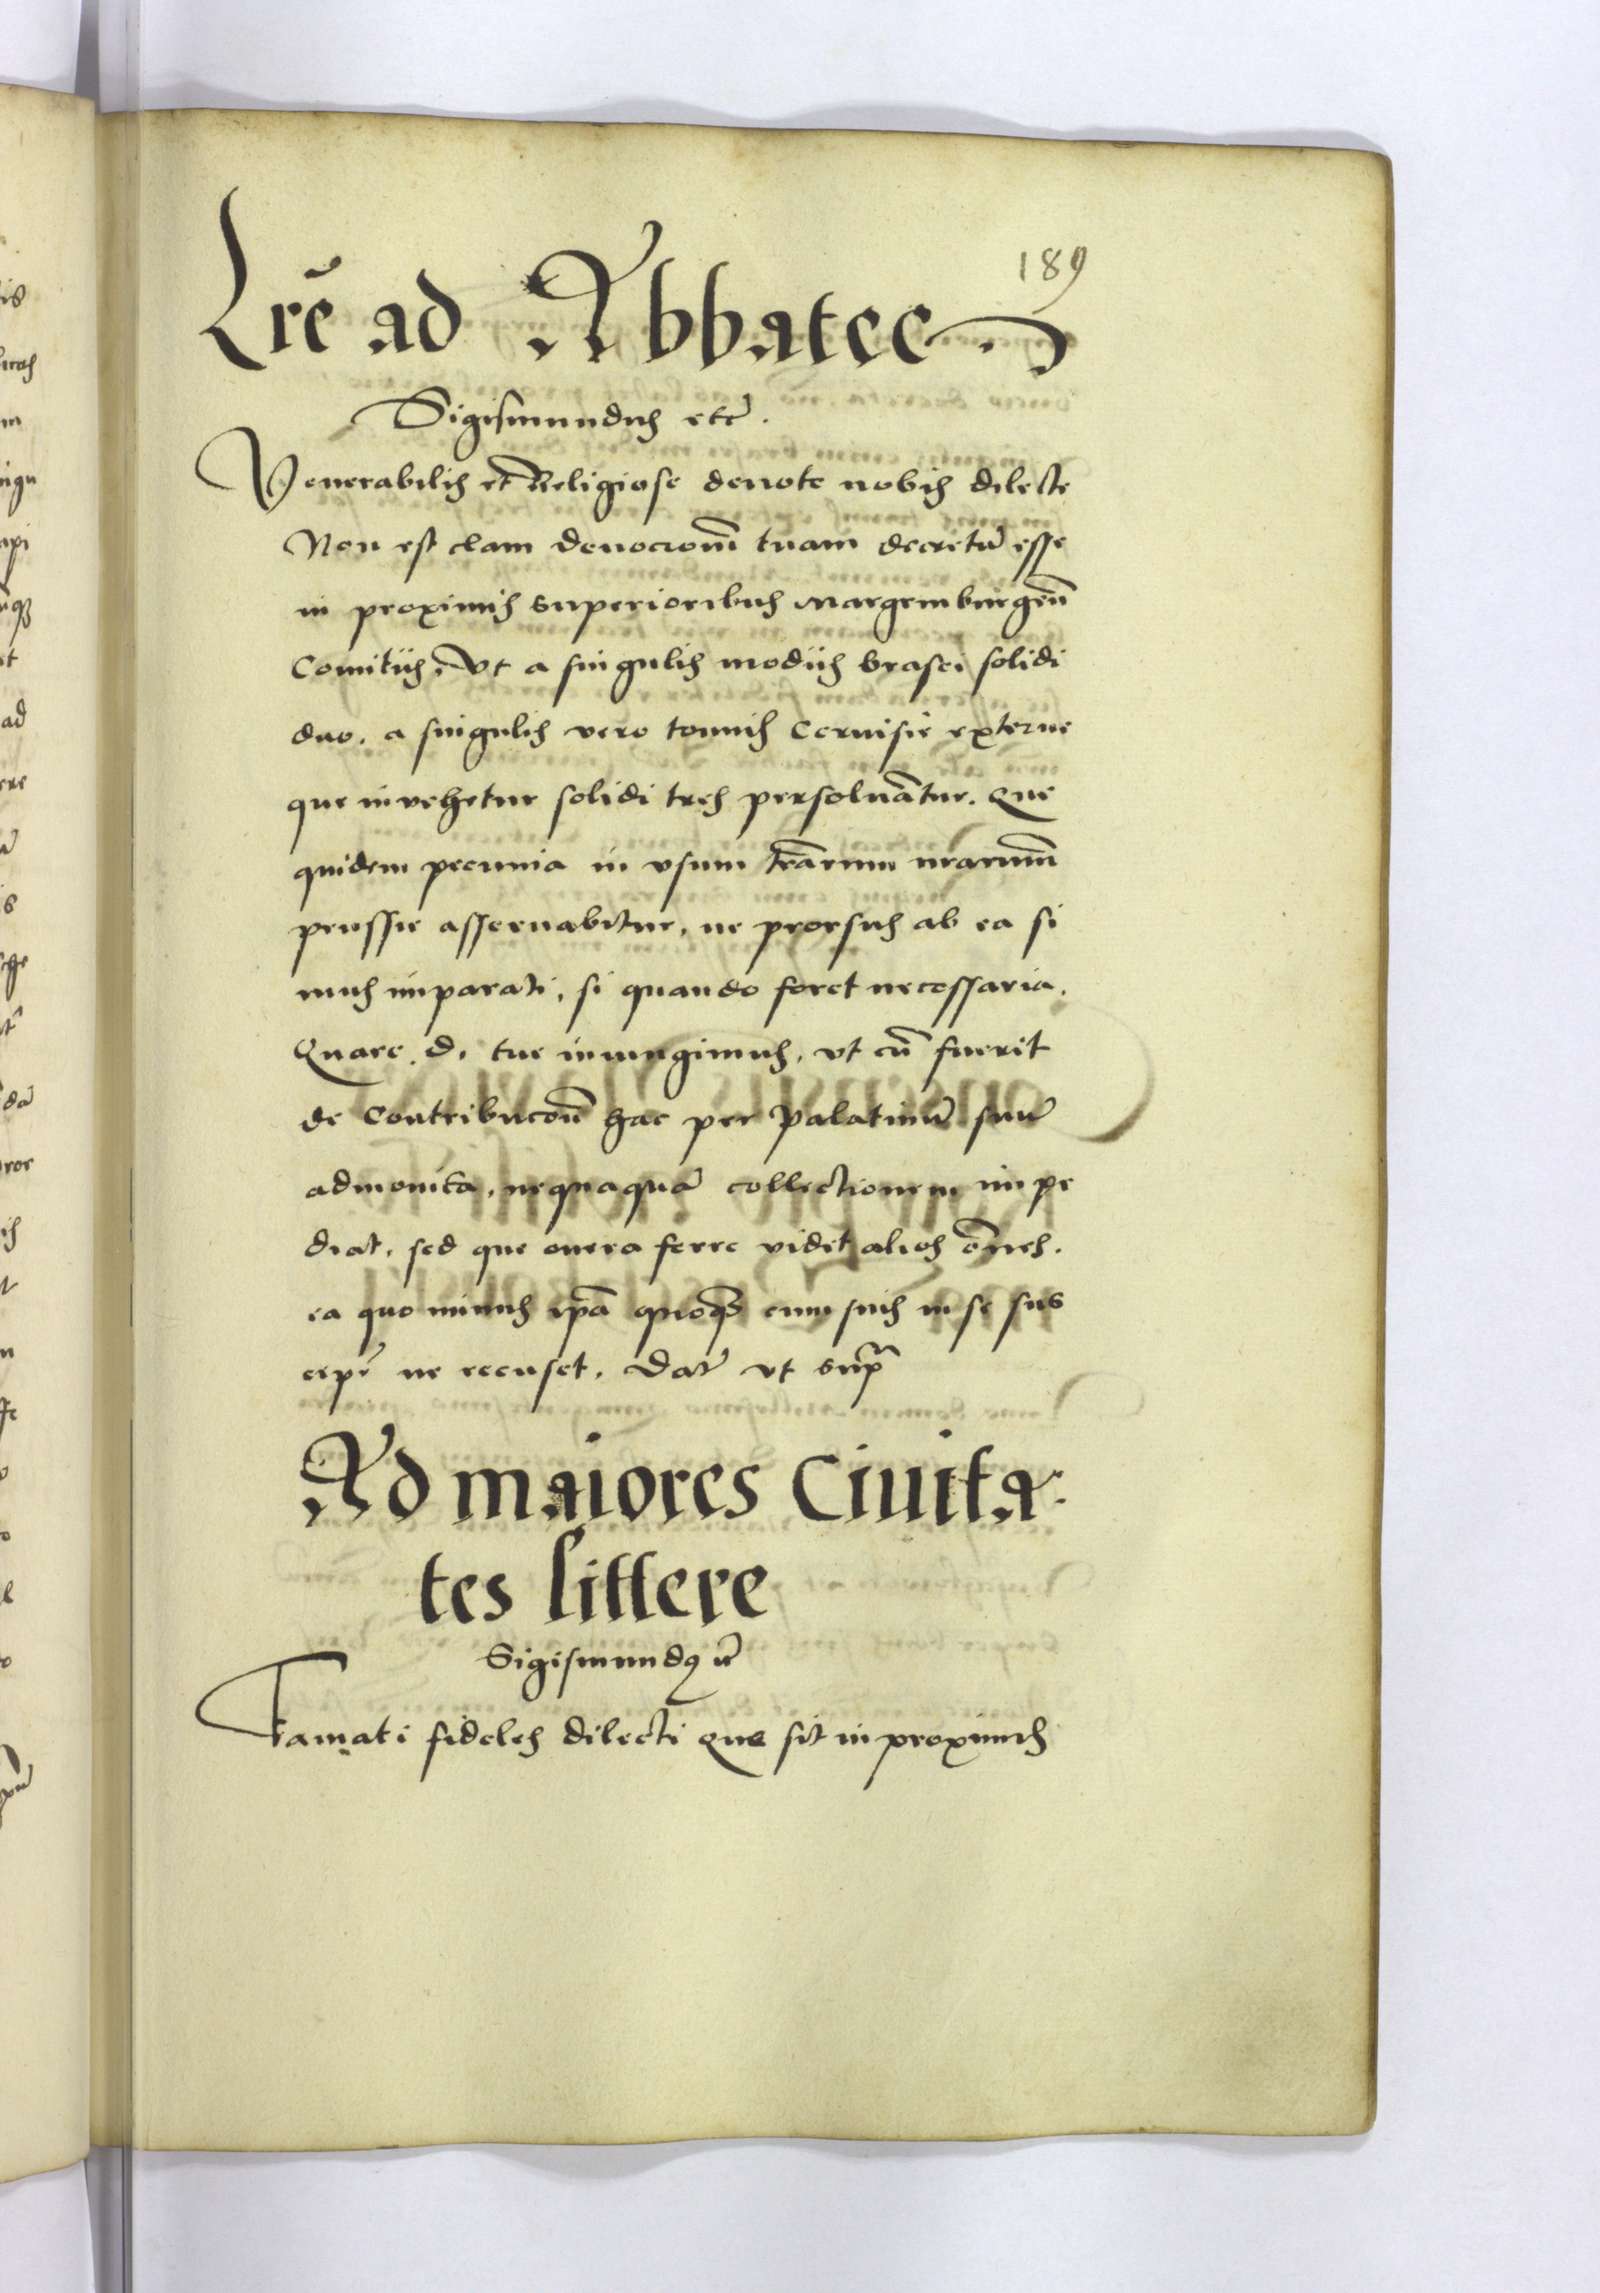 189
Lrē ad Abbatee
Sigismundus etc̄.
Venerabilis et Religiose deuote nobis dilecte
Non est clam deuocionē tuam decretū esse
in proximis superioribus Margemburgeñ
Comitiis, Vt a singulis modiis brasei solidi
duo, a singulis vero tonnis Ceruisie externe
que inuehetur solidi tres persoluātur. Que
quidem pecunia in vsum tr̄arum nrarum̄
prussie asseruabitur, ne prorsus ab ea si
mus imparati, si quando foret necessaria.
Quare. d. tue iniungimus, vt cū fuerit
de Contribucōn̄ hac per Palatinū suū
admonita, nequaquā collectionem impe
diat, sed que onera ferre videt alios ōnes.
ea quo minus ipā quoqꝫ cum suis in se sus
cipe͛ ne recuset. Dat̄ vt supᷓ
Ad maiores Ciuita
tes littere
Sigismundꝰ etc̄
Famati fideles dilecti que sit in proximis